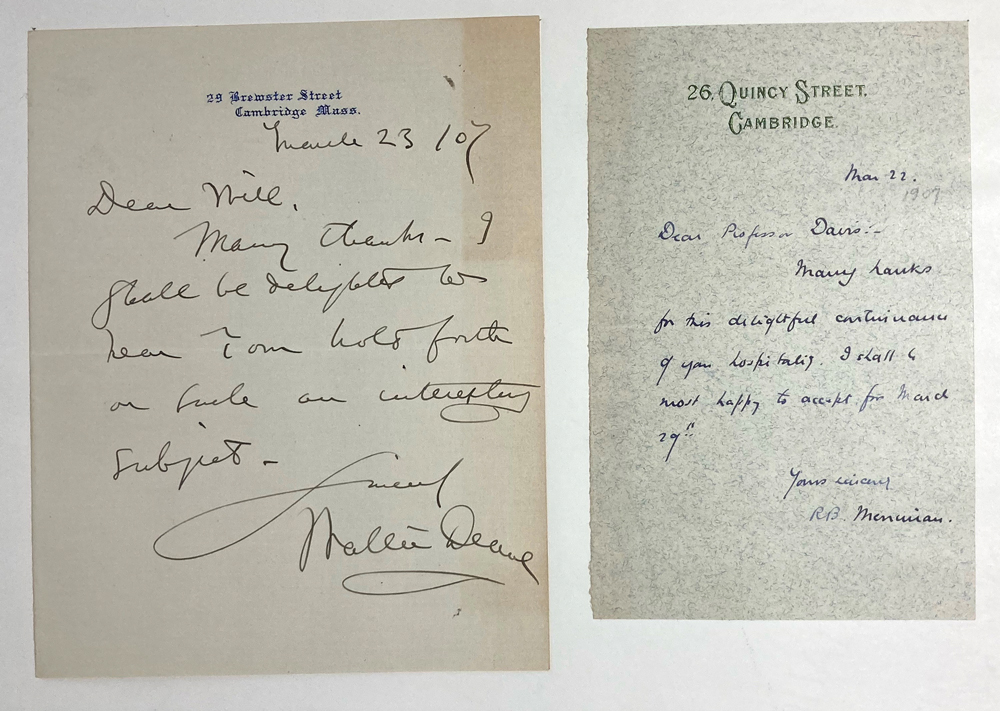 29 Brewster Street
Cambridge Mass.
March 23 /07
Dear Will,
Many thanks – I
shall be delighted to
hear Tom hold forth
on such an interesting
subject –
Sincerely
Walter Deane
26, QUINCY STREET.
CAMBRIDGE.
Mar 22.
1907
Dear Professor Davis:–
Many thanks
for this delightful continuance
of your hospitality. I shall be
most happy to accept for March
29th
Yours sincerely
R.B. Merriman.